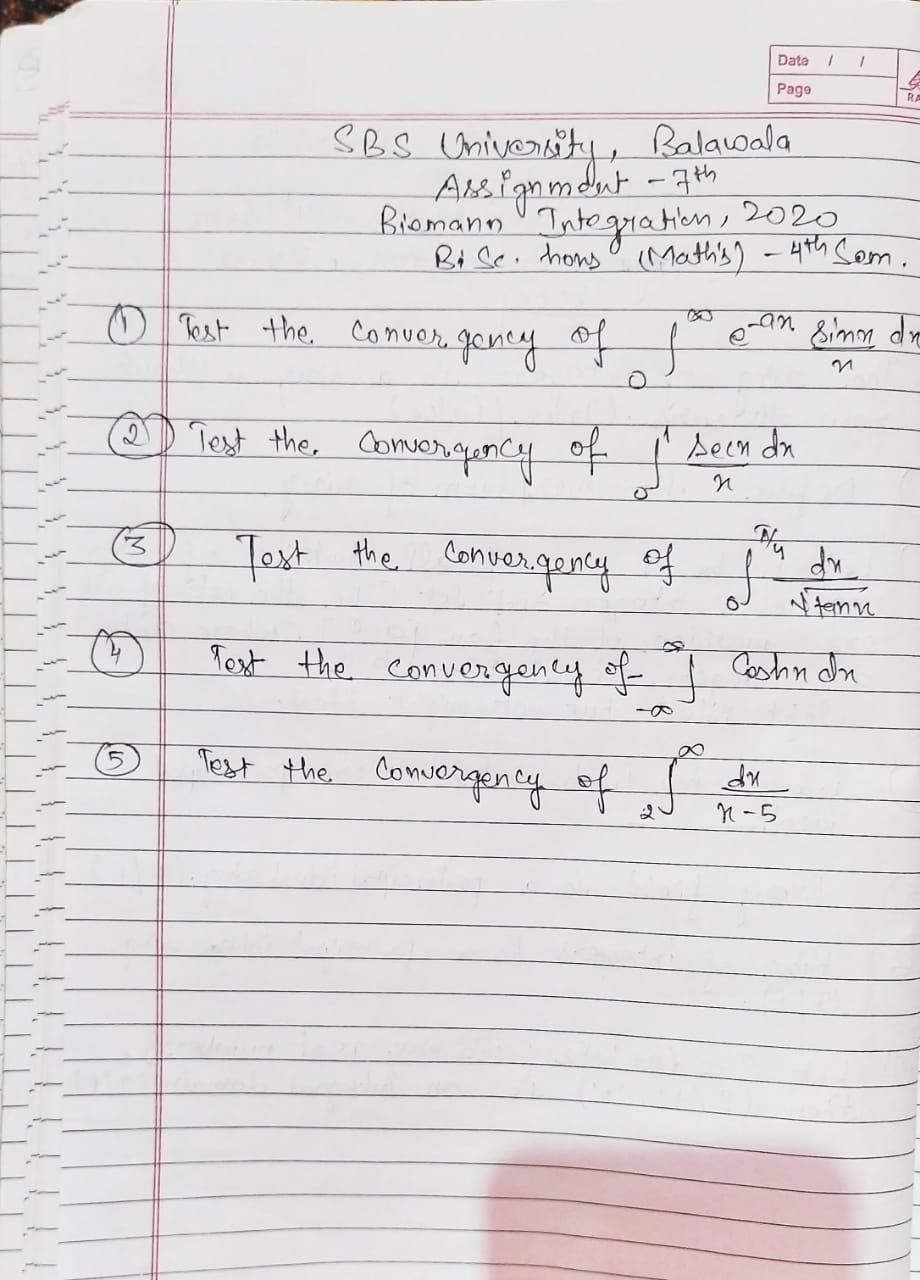 Date / /
Page
RA
SBS University, Balawala
Assignment - 7th
Riemann Integration, 2020
B. Sc. hons (Math's) - 4th Sem.
① Test the Convergency of ∫₀^∞ e^-ax sinx/x dx
② Test the Convergency of ∫₀^1 secx/x dx
③ Test the Convergency of ∫₀^π/4 dx/√tanx
④ Test the convergency of ∫₋∞^∞ Coshx dx
⑤ Test the Convergency of ∫₂^∞ dx/x-5